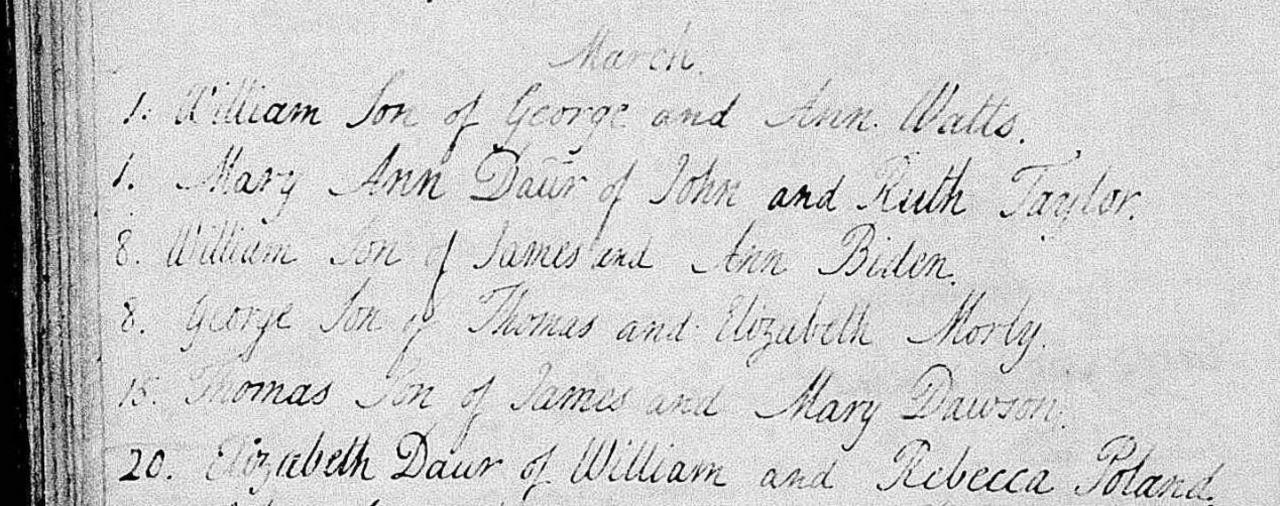 March.
1. William Son of George and Ann Watts.
1. Mary Ann Daur of John and Ruth Taylor.
8. William Son of James and Ann Biden.
8. George Son of Thomas and Elizabeth Morly.
15. Thomas Son of James and Mary Dawson.
20. Elizabeth Daur of William and Rebecca Poland.